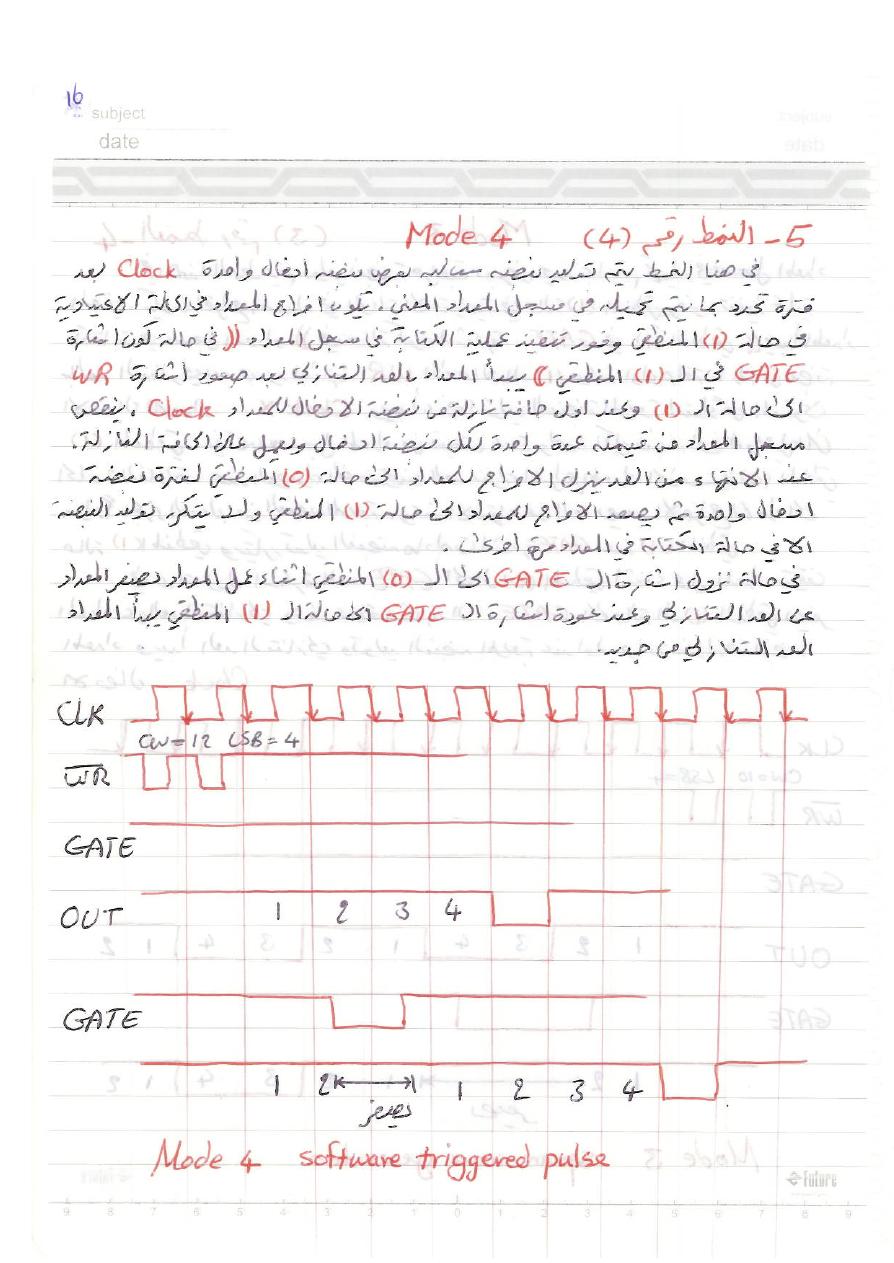 16
subject
date
5- النمط رقم (4) Mode 4
في هذا النمط يتم توليد نبضة سالبة بعرض نبضة ادخال واحدة Clock بعد
فترة تحدد بما يتم تحميله في مسجل المعداد المعني. يكون اخراج المعداد في الحالة الاعتيادية
في حالة (1) المنطقي وفور تنفيذ عملية الكتابة في سجل المعداد (( في حالة كون اشارة
GATE في الـ (1) المنطقي )) يبدأ المعداد بالعد التنازلي بعد صعود اشارة WR
الى حالة الـ (1) وعند اول حافة نازلة من نبضة الادخال للمعداد Clock ، ينقص
مسجل المعداد من قيمته عدة واحدة لكل نبضة ادخال ويعمل على الحافة النازلة.
عند الانتهاء من العد ينزل الاخراج للمعداد الى حالة (0) المنطقي لفترة نبضة
ادخال واحدة ثم يصعد الاخراج للمعداد الى حالة (1) المنطقي ولا يتكرر توليد النبضة
الا في حالة الكتابة في المعداد مرة اخرى .
في حالة نزول اشارة الـ GATE الى الـ (0) المنطقي اثناء عمل المعداد يصفر المعداد
عن العد التنازلي وعند عودة اشارة الـ GATE الى حالة الـ (1) المنطقي يبدأ المعداد
العد التنازلي من جديد.
CLK
CW=12 LSB=4
WR
GATE
OUT 1 2 3 4
GATE
1 2 1 2 3 4
يصفر
Mode 4 software triggered pulse
Future
9 8 7 6 5 4 3 2 1 0 1 2 3 4 5 6 7 8 9